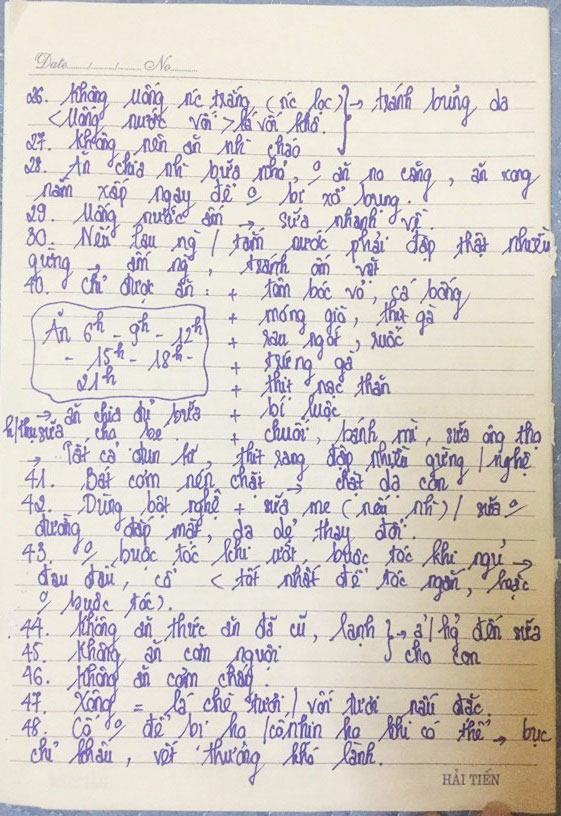 Date....../....../...... No..........
26. Không uống nc trắng (nc lọc) } → tránh bủng da
< Uống nước vối > lá vối khô.
27. Không nên ăn nh` cháo
28. Ăn chia nh` bữa nhỏ, 0/ ăn no căng, ăn xong
nằm xấp ngay để 0/ bị xổ bụng.
29. Uống nước ấm → sữa nhanh về
30. Nếu lau ng` / tắm nước phải đập thật nhiều
gừng → ấm ng`, tránh ốm vặt
40. Chỉ được ăn: + tôm bóc vỏ, cá bống
+ móng giò, thịt gà
Ăn 6h - 9h - 12h
- 15h - 18h -
21h
+ rau ngót, ruốc
+ trứng gà
+ thịt nạc thăn
→ ăn chia đủ bữa + bí luộc
h/thụ sữa cho bé. + chuối, bánh mì, sữa ông thọ
→ Tất cả đun kĩ, thịt rang đập nhiều gừng / nghệ
41. Bát cơm nén chặt → chặt dạ con
42. Dùng bột nghệ + sữa mẹ (nếu nh`) / sữa 0/
đường đắp mặt, da dẻ thay đổi.
43. 0/ buộc tóc khi ướt, buộc tóc khi ngủ →
đau đầu, cổ < tốt nhất để tóc ngắn, hoặc
0/ buộc tóc).
44. Không ăn thức ăn đã cũ, lạnh } → ả/hg̉ đến sữa
45. Không ăn cơm nguội cho con
46. Không ăn cơm cháy.
47. Xông = lá chè tươi / vối tươi nấu đặc.
48. Cố 0/ để bị ho / cố nhịn ho khi có thể → bục
chỉ khâu, vết thương khó lành.
HẢI TIẾN